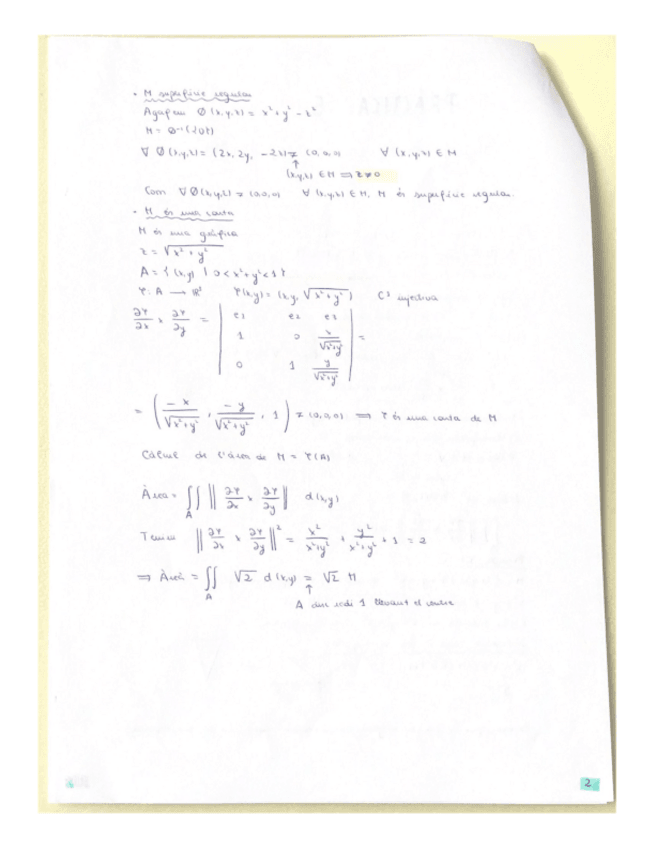 • M superfície regular
Agafem Ø(x,y,z) = x² + y² - z²
M = Ø⁻¹({0})
∇Ø(x,y,z) = (2x, 2y, -2z) ≠ (0,0,0) ∀(x,y,z) ∈ M
↑
(x,y,z) ∈ M ⟹ z ≠ 0
Com ∇Ø(x,y,z) ≠ (0,0,0) ∀(x,y,z) ∈ M, M és superfície regular.
• M és una carta
M és una gràfica
z = √(x² + y²)
A = {(x,y) | 0 < x² + y² < 1}
φ: A → ℝ³ φ(x,y) = (x, y, √(x² + y²)) C¹ injectiva
∂φ/∂x × ∂φ/∂y = | e1 e2 e3
1 0 x/√(x²+y²)
0 1 y/√(x²+y²) | =
= (-x/√(x²+y²), -y/√(x²+y²), 1) ≠ (0,0,0) ⟹ φ és una carta de M
Càlcul de l'àrea de M = φ(A)
Àrea = ∬_A ‖∂φ/∂x × ∂φ/∂y‖ d(x,y)
Tenim ‖∂φ/∂x × ∂φ/∂y‖² = x²/(x²+y²) + y²/(x²+y²) + 1 = 2
⟹ Àrea = ∬_A √2 d(x,y) = √2 π
↑
A disc radi 1 llevant el centre
2